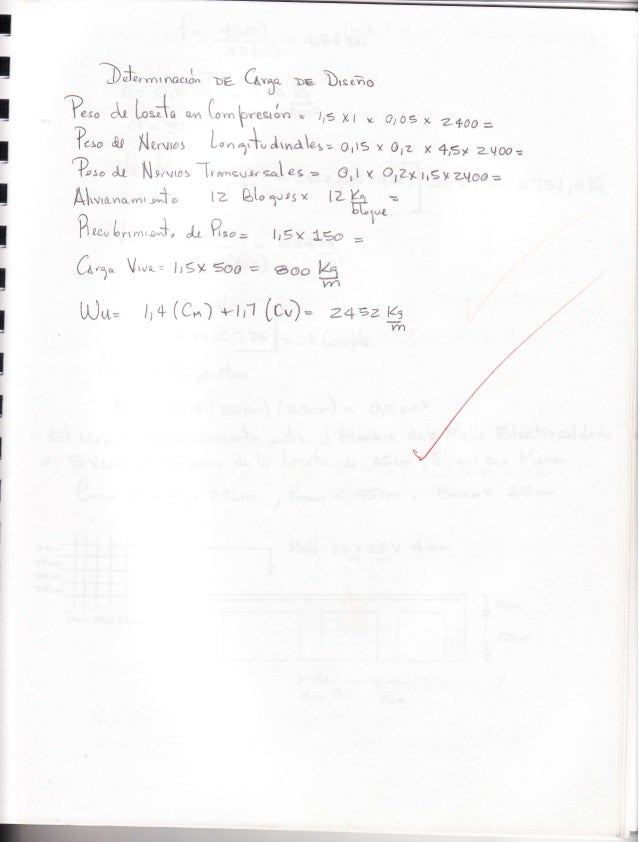 Determinación DE Carga DE Diseño
Peso de Loseta en Compresión = 1,5 x 1 x 0,05 x 2400 =
Peso de Nervios Longitudinales = 0,15 x 0,2 x 4,5 x 2400 =
Peso de Nervios Transversales = 0,1 x 0,2 x 1,5 x 2400 =
Alivianamiento 12 Bloques x 12 Kg/bloque =
Recubrimiento de Piso = 1,5 x 150 =
Carga Viva = 1,5 x 500 = 800 Kg/m
Wu = 1,4 (Cm) + 1,7 (Cv) = 2452 Kg/m